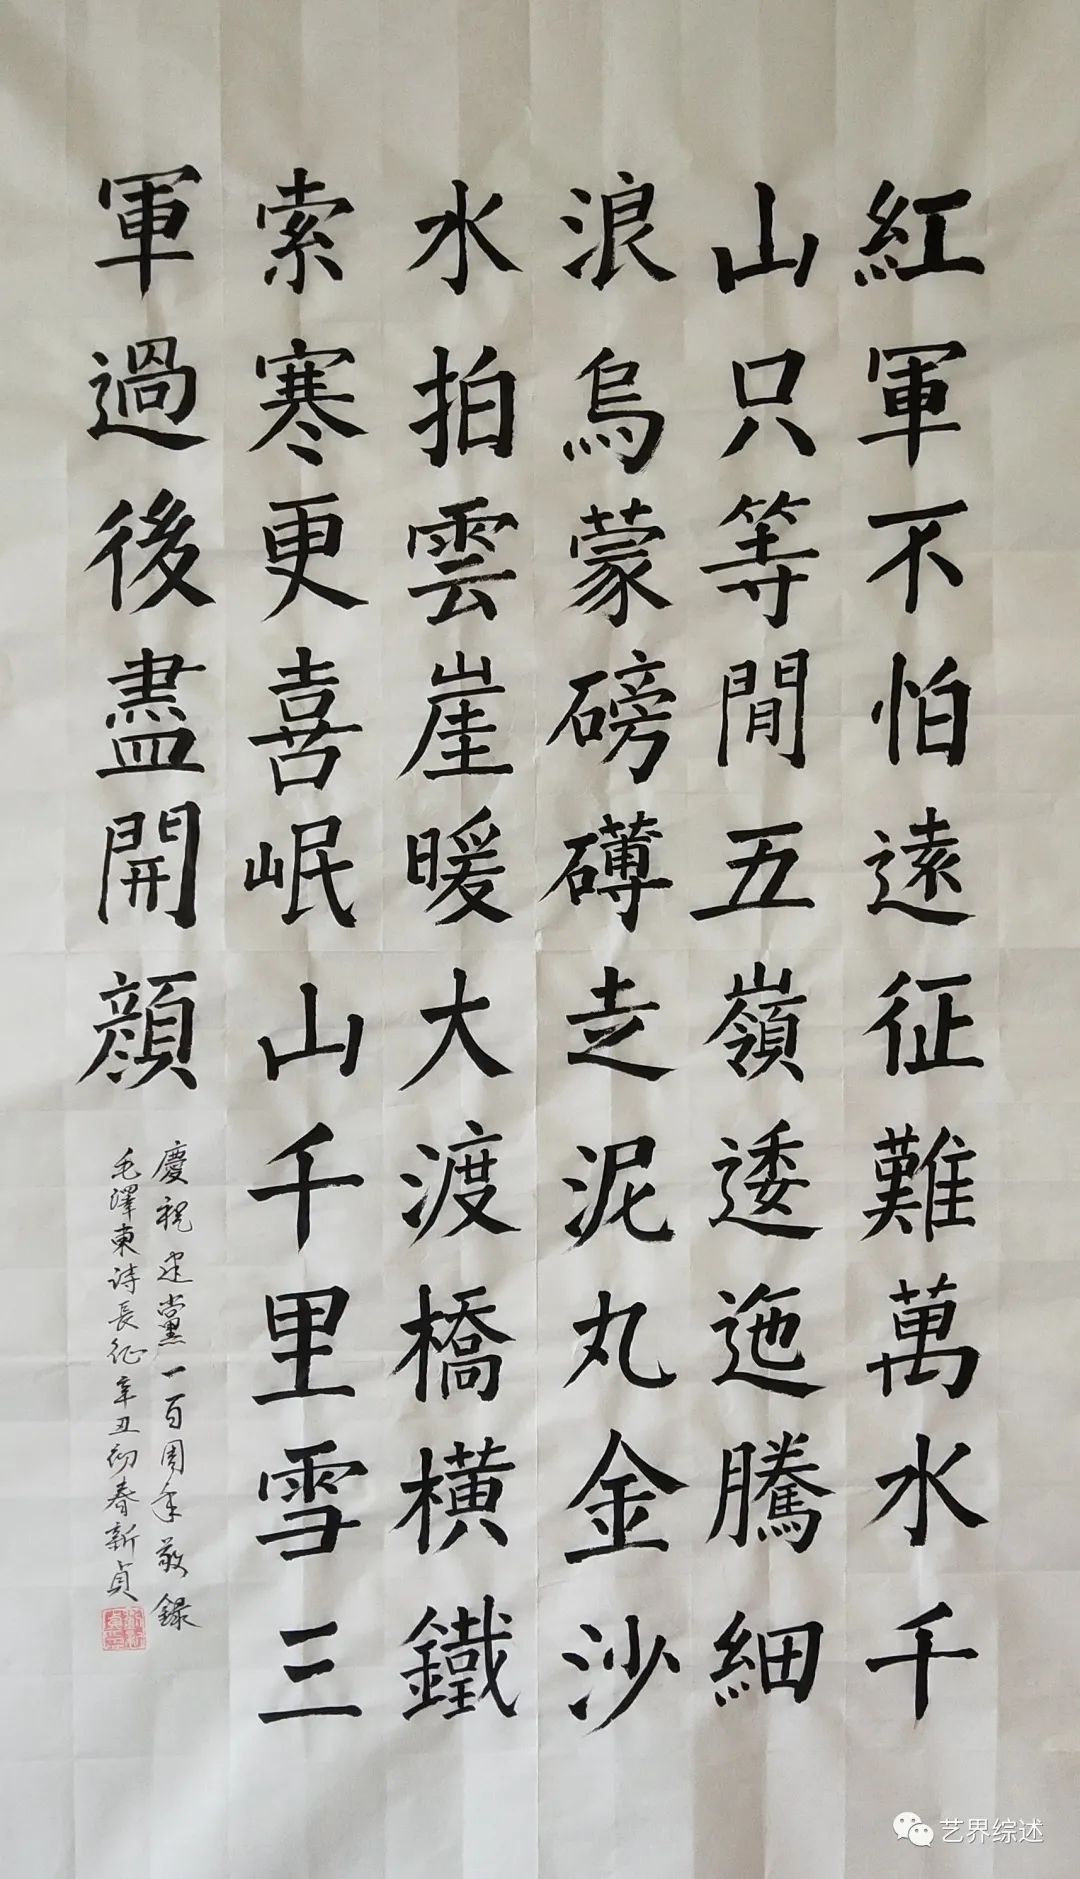 紅軍不怕遠征難萬水千
山只等閒五嶺逶迤騰細
浪烏蒙磅礴走泥丸金沙
水拍雲崖暖大渡橋橫鐵
索寒更喜岷山千里雪三
軍過後盡開顔
慶祝建黨一百周年敬録
毛澤東詩長征辛丑初春新貞
艺界综述